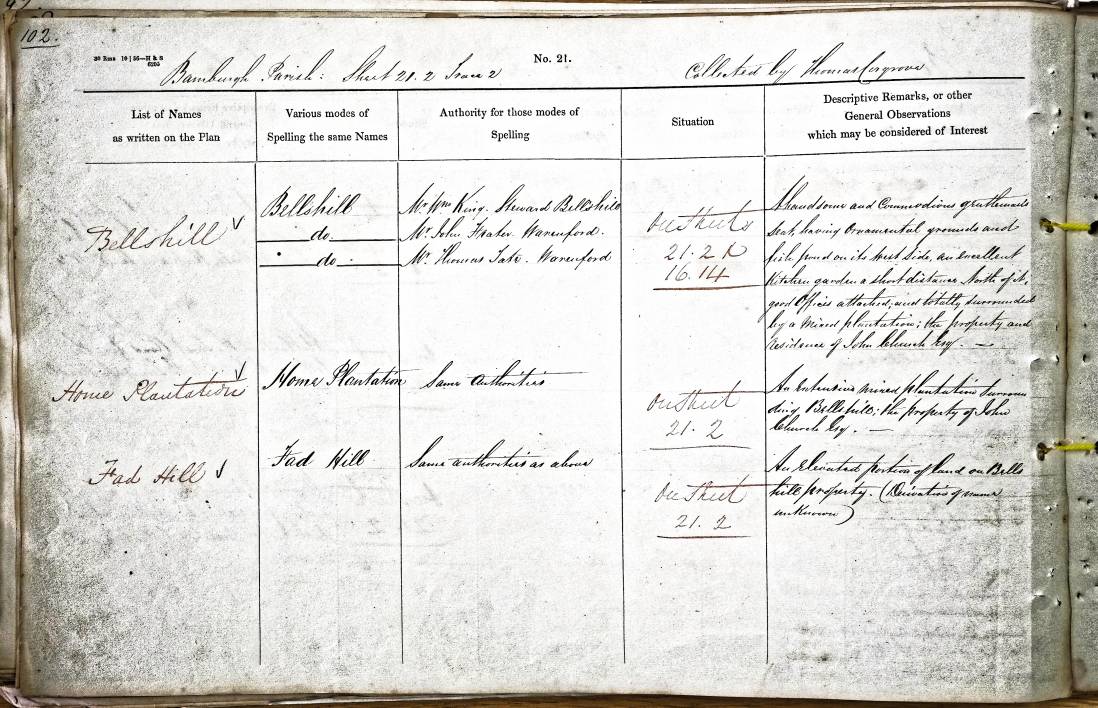 102.
No. 21.
Bamburgh Parish: Sheet 21.2 Trace 2
Collected by Thomas Cosgrove
List of Names
as written on the Plan
Various modes of
Spelling the same Names
Authority for those modes of
Spelling
Situation
Descriptive Remarks, or other
General Observations
which may be considered of Interest
Bellshill
Bellshill
do
do
Mr. Wm King. Steward Bellshill
Mr. John Frater. Warenford.
Mr. Thomas Tate. Warenford
On Sheets
21.2 &
16.14
A handsome and Commodious gentlemans
Seat, having Ornamental grounds and
fish pond on its West Side, an excellent
Kitchen garden a short distance North of it,
good Offices attached, and totally surrounded
by a Mixed plantation; the property and
residence of John Church Esq. —
Home Plantation
Home Plantation
Same authorities
On Sheet
21.2
An Extensive mixed plantation surroun
ding Bellshill; the property of John
Church Esq. —
Fad Hill
Fad Hill
Same authorities as above
On Sheet
21.2
An Elevated portion of land on Bells
hill property. (Derivation of name
unknown)